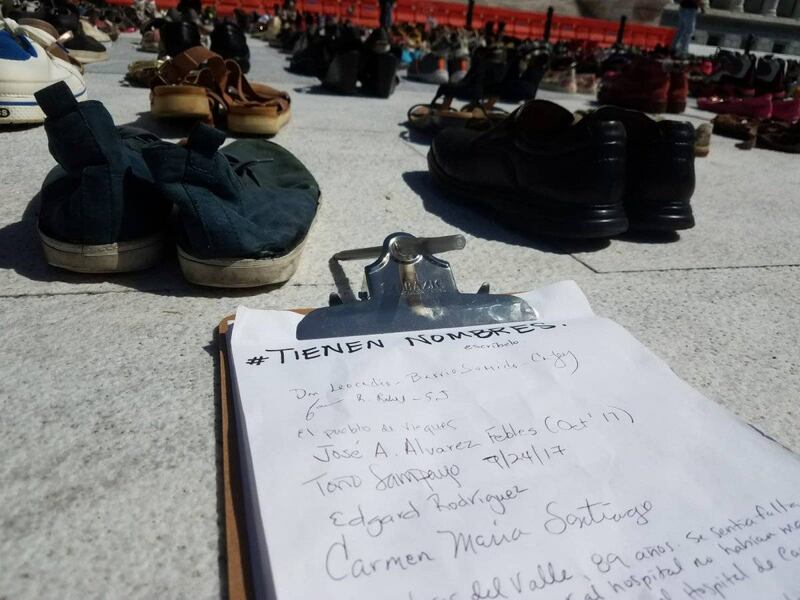 #TIENEN NOMBRES.
escríbelo
Don Leocadio - Barrio Sumido - Cayey
R. - S.J
el pueblo de Vieques
José A. Alvarez Febles (Oct' 17)
Toño Sampayo 9/24/17
Edgard Rodriguez
Carmen María Santiago
del Valle, 89 años. Se sentía falta
al hospital no habían
el Hospital de